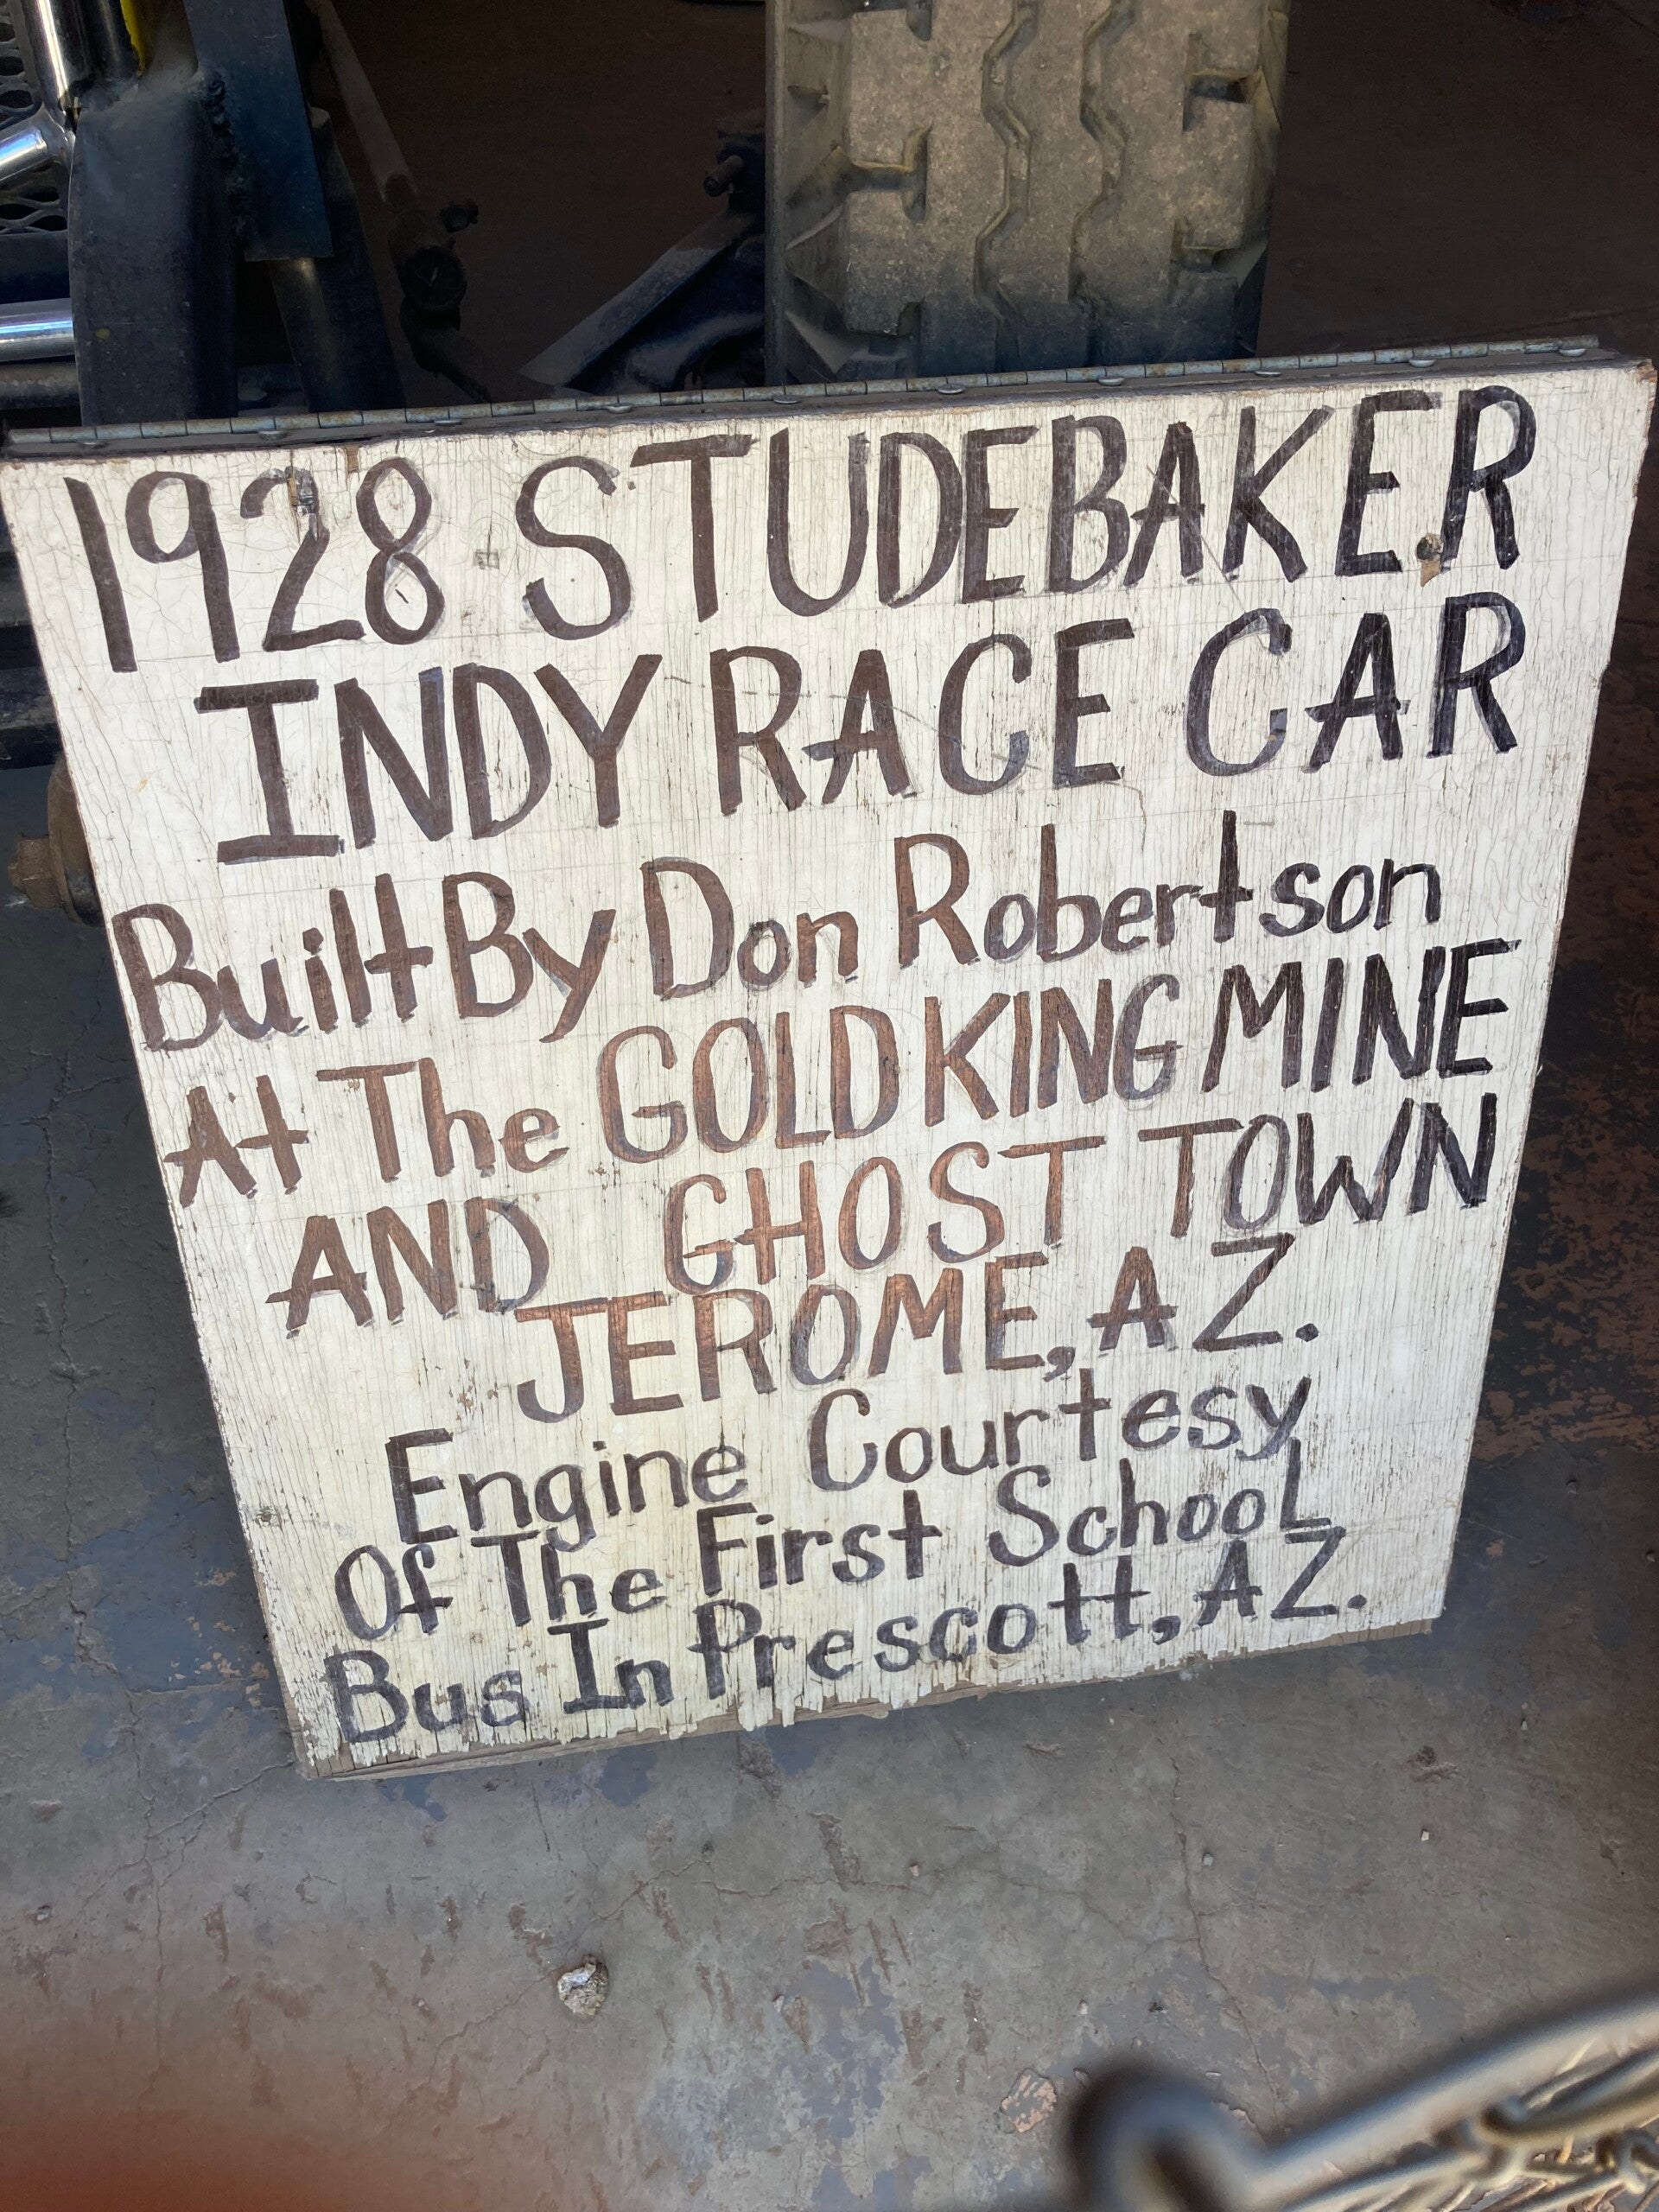 1928 STUDEBAKER
INDY RACE CAR
Built By Don Robertson
At The GOLD KING MINE
AND GHOST TOWN
JEROME, AZ.
Engine Courtesy
Of The First School
Bus In Prescott, AZ.